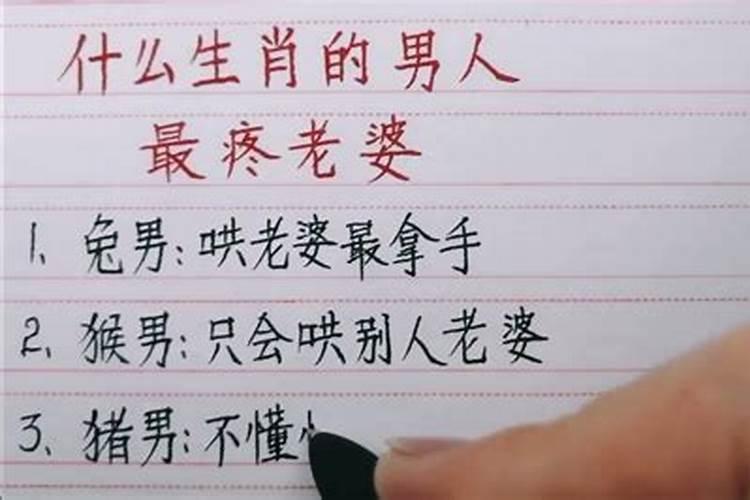 什么生肖的男人
最疼老婆
1、兔男:哄老婆最拿手
2、猴男:只会哄别人老婆
3、猪男:不懂